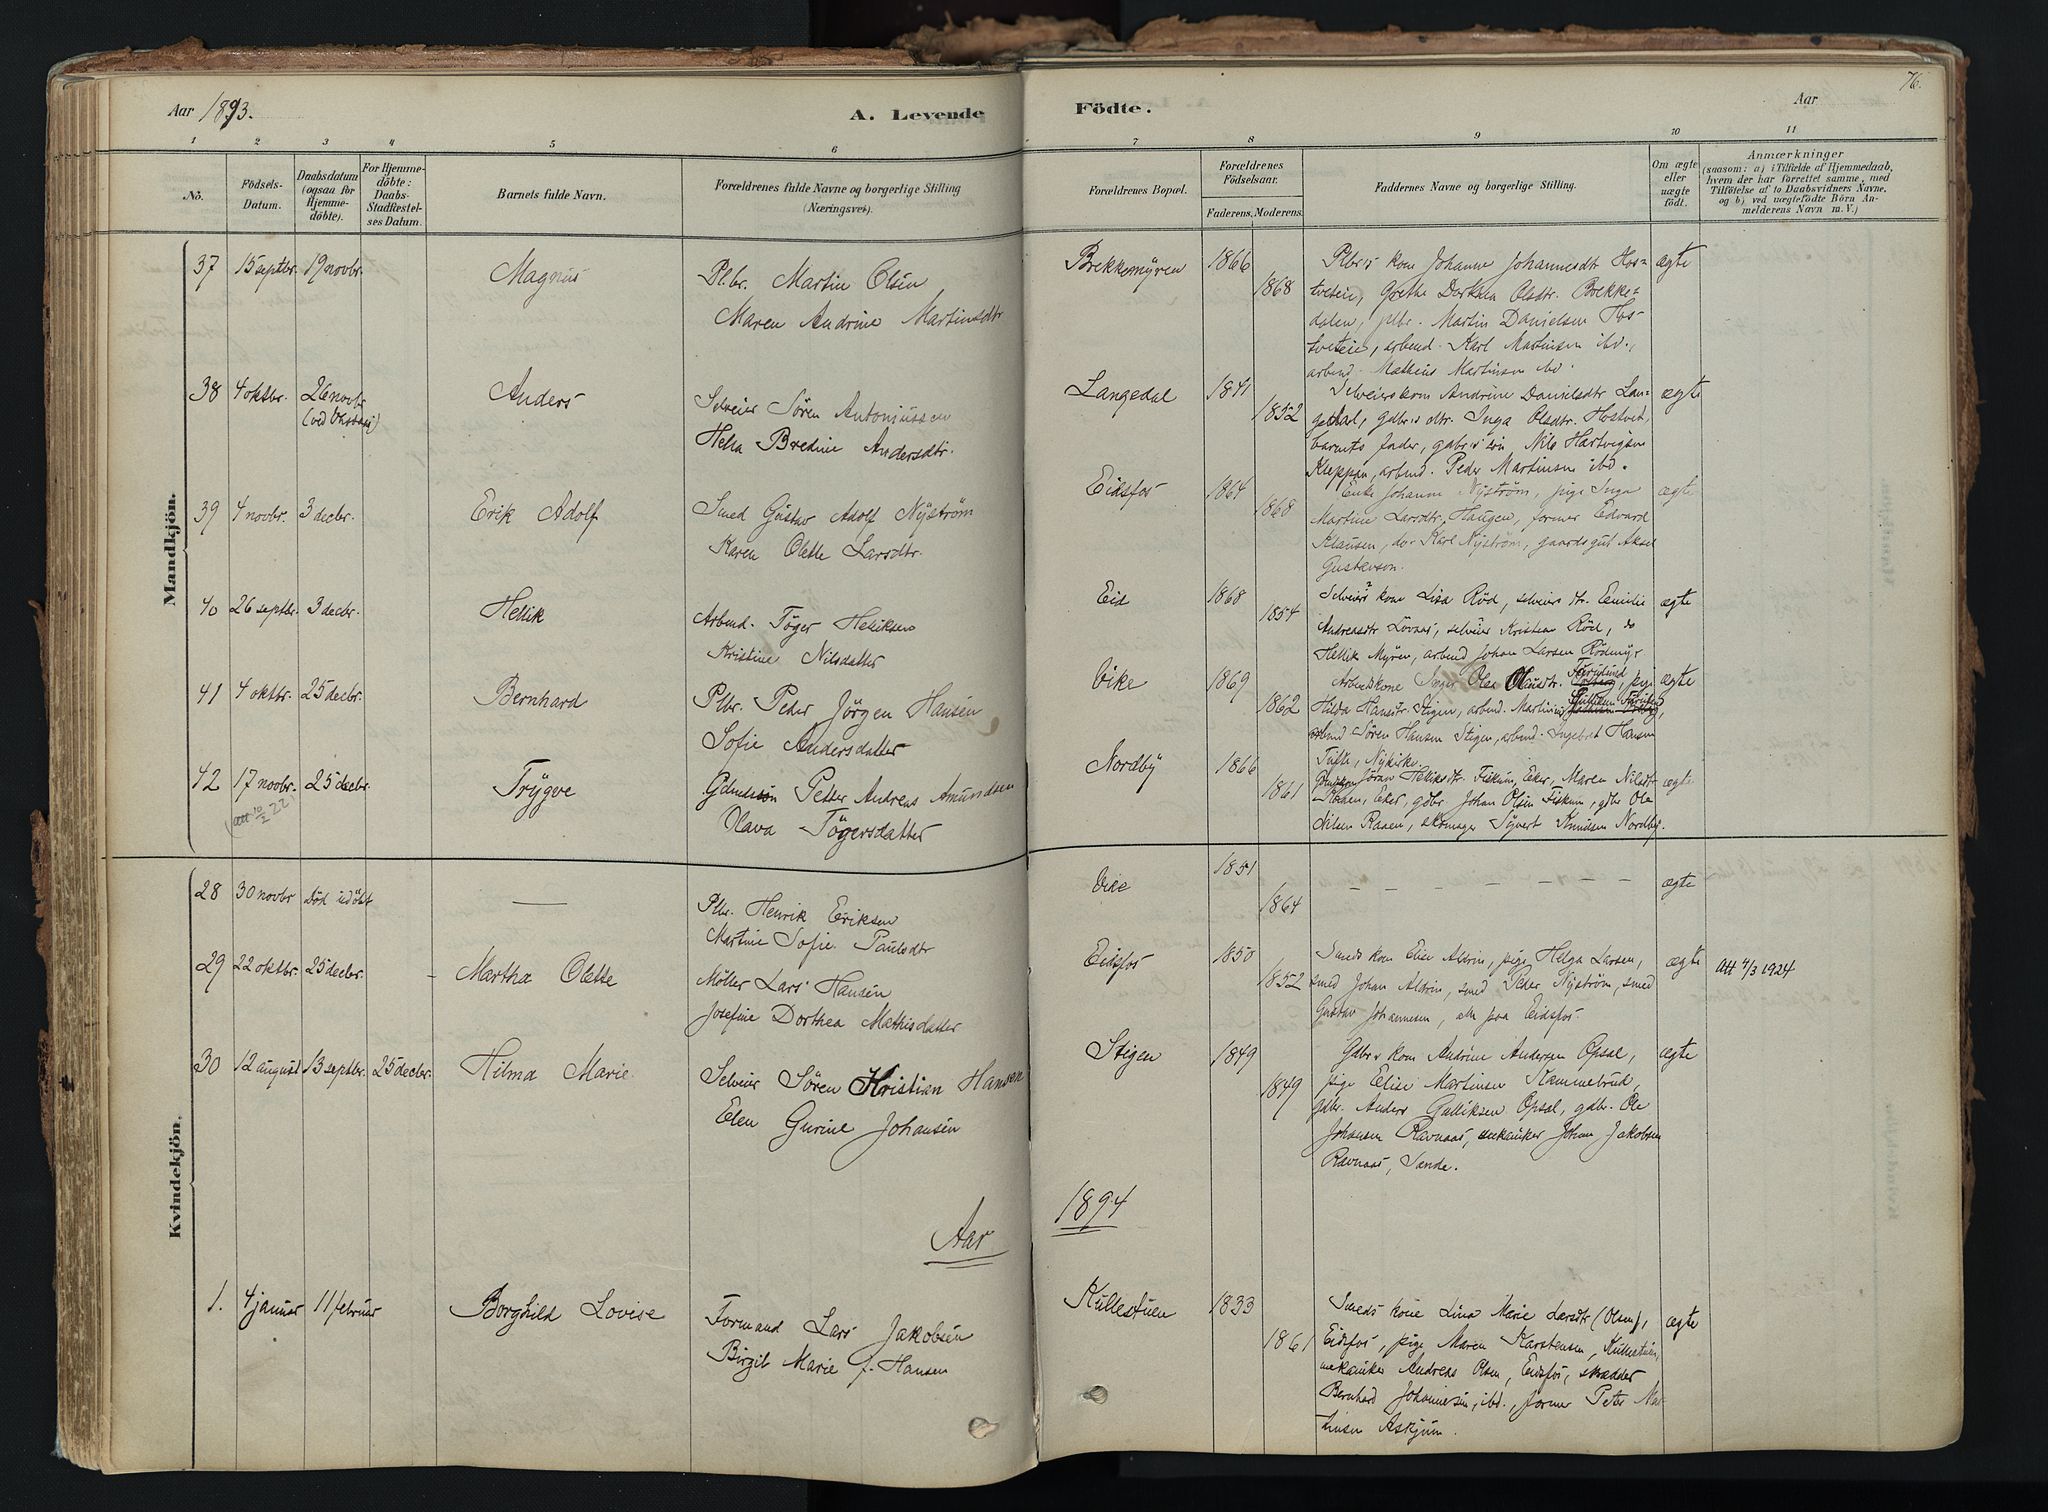 76.
Aar 1893.
A. Levende
Födte.
Aar
1 2 3 4 5 6 7 8 9 10 11
No.
Födsels-
Datum.
Daabsdatum
(ogsaa for
Hjemme-
döbte).
For Hjemme-
döbte:
Daabs-
Stadfæstel-
ses Datum.
Barnets fulde Navn.
Forældrenes fulde Navne og borgerlige Stilling
(Næringsvei).
Forældrenes Bopæl.
Forældrenes
Födselsaar.
Faderens. Moderens.
Faddernes Navne og borgerlige Stilling.
Om ægte
eller
uægte
födt.
Anmærkninger
(saasom: a) i Tilfælde af Hjemmedaab,
hvem der har forrettet samme, med
Tilföielse af to Daabsvidners Navne,
og b) ved uægtefödte Börn An-
melderens Navn m. V.)
Mandkjön.
37 15 septbr. 19 novbr. Magnus
Plbr. Martin Olsen
Maren Andrine Martinsdtr
Brekkemyren 1866 1868
Plbrs kone Johanne Johannesdtr Hos-
tveten, Grethe Dorthea Olsdtr. Brekke-
dalen, plbr. Martin Danielsen Hos-
tveten, arbmd. Karl Martinsen ibd.,
arbmd. Mathius Martinsen ibd.
ægte
38 4 oktbr. 26 novbr
Anders
Selveier Sören Antoniussen
Helia Bredine Andersdtr.
Langedal 1841 1852
Selveierskone Andrine Danielsdtr Lan-
gedal, gdbrs dtr. Inga Olsdtr. Hostvet,
barnets fader, gdbrs sön Nils Hartvigsen
Kleppan, arbmd. Peder Martinsen ibd.
ægte
39 4 novbr. 3 decbr. Erik Adolf
Smed Gustav Adolf Nyström
Karen Olette Larsdtr.
Eidsfos 1864 1868
Enke Johanne Nyström, pige Inga
Martine Larsdtr. Haugen, former Edvard
Klausen, do. Karl Nyström, gaardsgut Aksel
Gustavson.
ægte
40 26 septbr. 3 decbr. Hellik
Arbmd. Töger Helliksen
Kristine Nilsdatter
Eid 1868 1854
Selveiers kone Lisa Röd, selveiers dtr. Emilie
Andreasdtr Lövaas, selveier Kristian Röd, do
Hellik Myren, arbmd Johan Larsen Rödmyr
ægte
41 4 oktbr. 25 decbr. Bernhard
Plbr. Peder Jörgen Hansen
Sofie Andersdatter
Vike 1869 1862
Arbmdskone Inger Olea Olausdtr. , pige
Hilda Hansdtr. Stigen, arbmd. Martinius
arbmd Sören Hansen Stigen, arbmd. Ingebret Hansen
Tufte, Nykirke.
ægte
42 17 novbr. 25 decbr. Trygve
Gdmdssön Petter Andreas Amundsen
Olava Tögersdatter
Nordby 1866 1861
Jöran Helliksdtr. Fiskum, Eker, Maren Nilsdtr
Raaen, Eker, gdbr Johan Olsen Fiskum, gdbr Ole
Nilsen Raaen, skomager Syvert Knudsen Nordby.
ægte
Kvindekjön.
28 30 novbr Död udöbt —
Plbr. Henrik Eriksen
Martine Sofie Paulsdtr
Vike 1851 1864 – – – – – – – – ægte
29 22 oktbr. 25 decbr. – Martha Olette
Möller Lars Hansen
Josefine Dorthea Mathisdatter
Eidsfos 1850 1852
Smeds kone Elise Aldrin, pige Helga Larsen,
smed Johan Aldrin, smed Peder Nyström, smed
Gustav Johannesen, alle paa Eidsfos.
ægte
Att 4/3 1924
30 12 august 13 septbr. 25 decbr. Hilma Marie
Selveier Sören Kristian Hansen
Elen Gurine Johansen
Stigen 1849 1849
Gdbrs kone Andrine Andersen Opsal,
pige Elise Martinsen Kammebrud,
gdbr. Anders Gulliksen Opsal, gdbr. Ole
Johansen Ravnaas, mekaniker Johan Jakobsen
Ravnaas, Sande.
ægte
Aar 1894
1. 4 januar 11 februar Borghild Lovise
Formand Lars Jakobsen
Birgit Marie f. Hansen
Kullestuen 1833 1861
Smeds kone Lina Marie Larsdtr (Olsen),
Eidsfos, pige Maren Karstensen, Kullestuen,
mekaniker Andreas Olsen, Eidsfos, skrædder
Bernhard Johannesen, ibd., former Peter Mar-
tinsen Askjum.
ægte